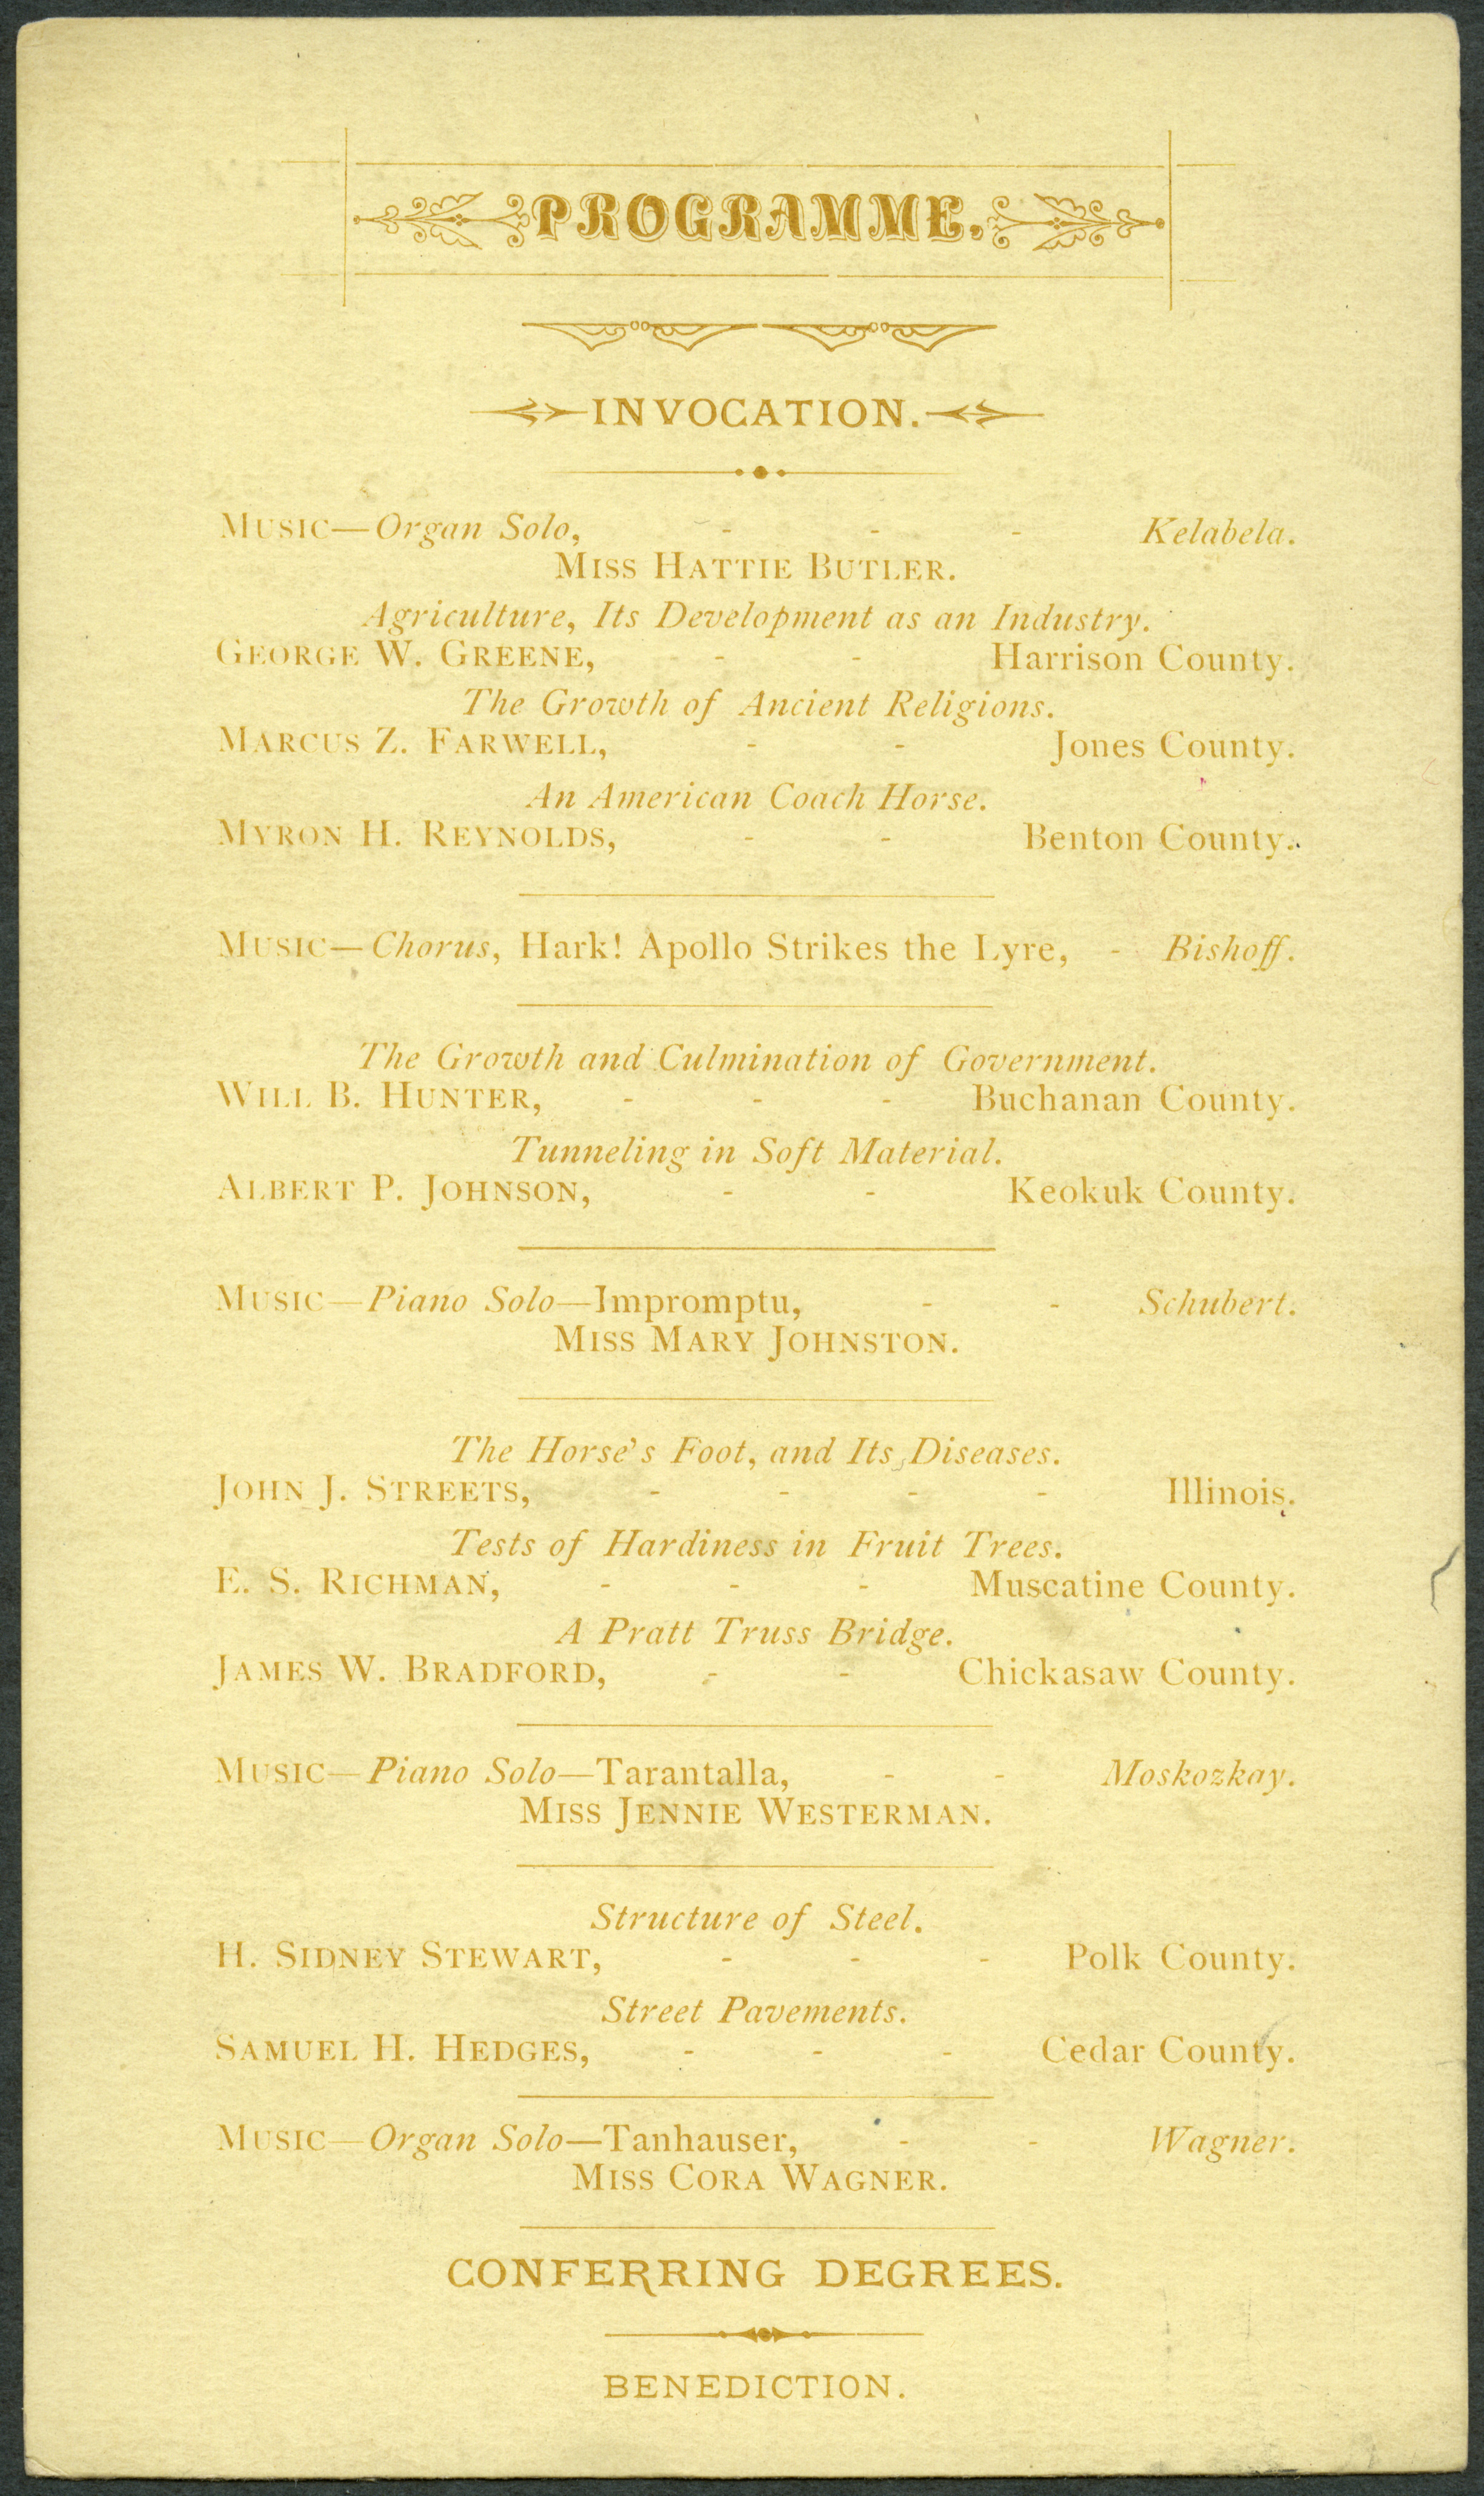 PROGRAMME.
INVOCATION.
MUSIC—Organ Solo, - - - Kelabela.
MISS HATTIE BUTLER.
Agriculture, Its Development as an Industry.
GEORGE W. GREENE, - - Harrison County.
The Growth of Ancient Religions.
MARCUS Z. FARWELL, - - Jones County.
An American Coach Horse.
MYRON H. REYNOLDS, - - Benton County.
MUSIC—Chorus, Hark! Apollo Strikes the Lyre, - Bishoff.
The Growth and Culmination of Government.
WILL B. HUNTER, - - - Buchanan County.
Tunneling in Soft Material.
ALBERT P. JOHNSON, - - Keokuk County.
MUSIC—Piano Solo—Impromptu, - - Schubert.
MISS MARY JOHNSTON.
The Horse's Foot, and Its Diseases.
JOHN J. STREETS, - - - - Illinois.
Tests of Hardiness in Fruit Trees.
E. S. RICHMAN, - - - Muscatine County.
A Pratt Truss Bridge.
JAMES W. BRADFORD, - - Chickasaw County.
MUSIC—Piano Solo—Tarantalla, - - Moskozkay.
MISS JENNIE WESTERMAN.
Structure of Steel.
H. SIDNEY STEWART, - - - Polk County.
Street Pavements.
SAMUEL H. HEDGES, - - - Cedar County.
MUSIC—Organ Solo—Tanhauser, - - Wagner.
MISS CORA WAGNER.
CONFERRING DEGREES.
BENEDICTION.